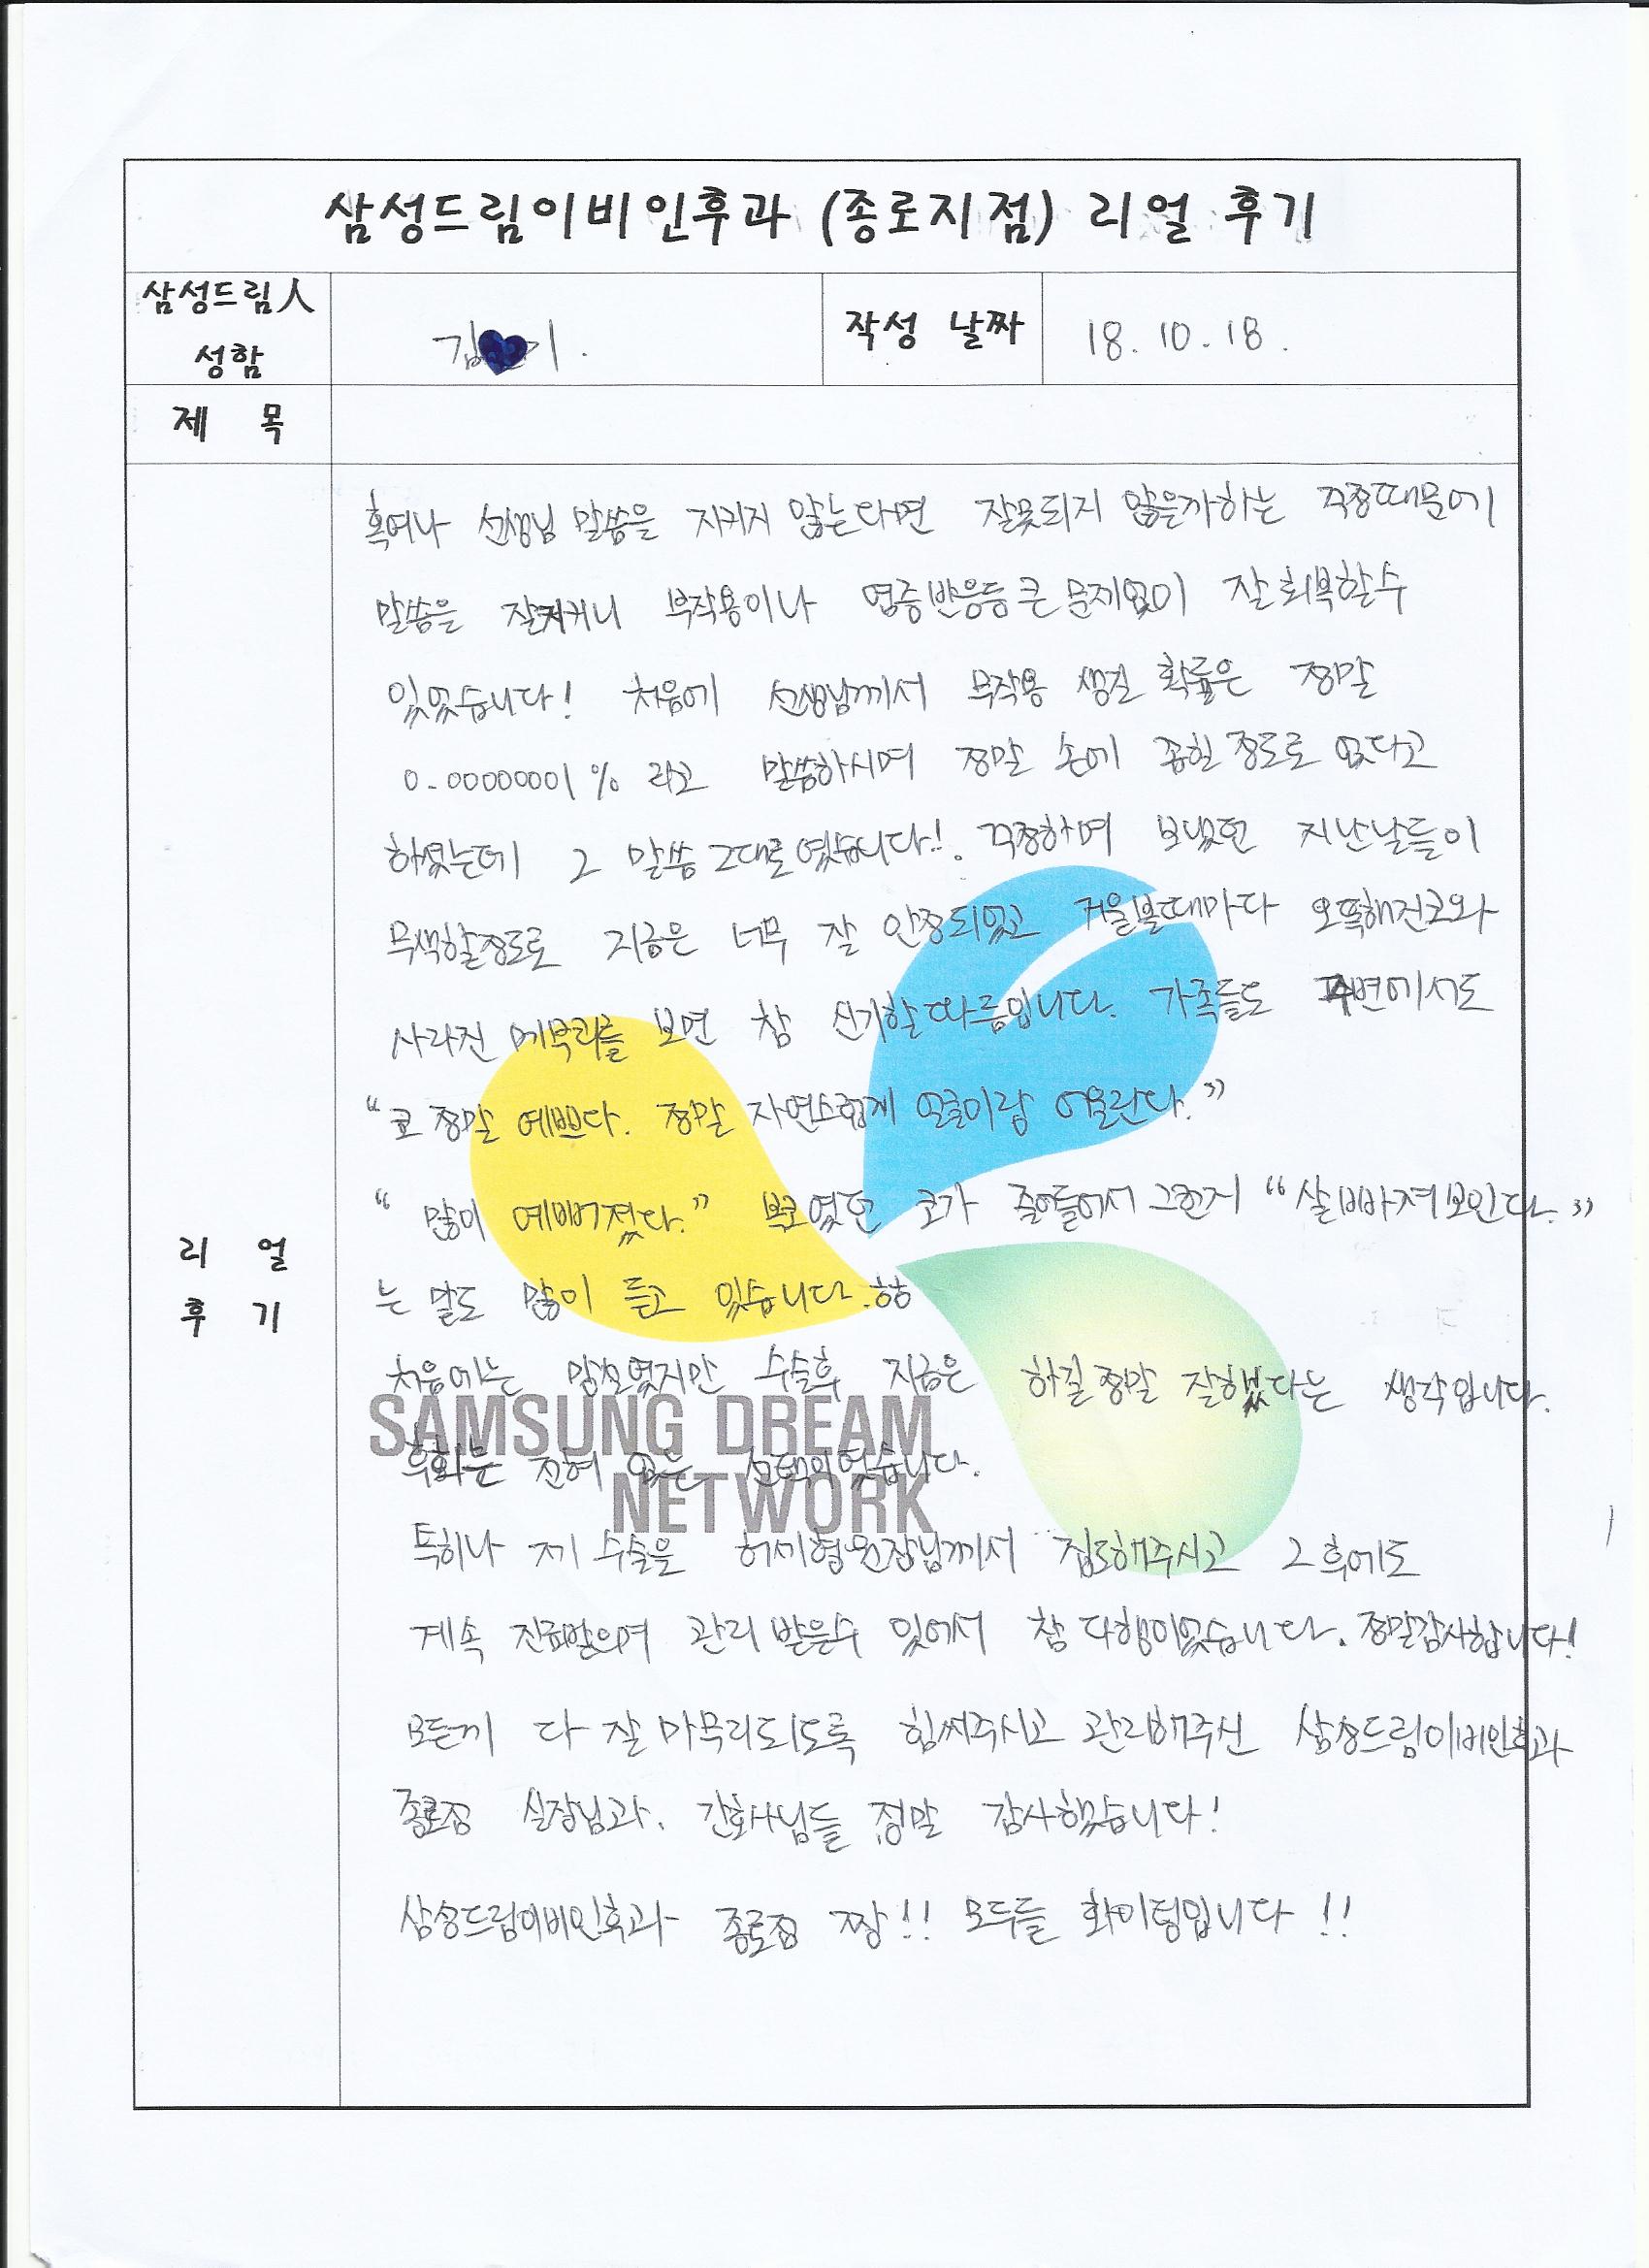 삼성드림이비인후과 (종로지점) 리얼 후기
삼성드림人
성함
김 이.
작성 날짜
18. 10. 18.
제 목
혹여나 선생님 말씀을 지키지 않는다면 잘못되지 않을까하는 걱정때문에
말씀을 잘지키니 부작용이나 염증반응등 큰 문제없이 잘 회복할수
있었습니다! 처음에 선생님께서 부작용 생길 확률은 정말
0.00000001% 라고 말씀하시며 정말 손에 꼽힐 정도로 없다고
하셨는데 그 말씀 그대로였습니다!. 걱정하며 보냈던 지난날들이
무색할정도로 지금은 너무 잘 안정되었고 거울볼때마다 오똑해진코와
사라진 메부리를 보면 참 신기할따름입니다. 가족들도 주변에서도
“코 정말 예쁘다. 정말 자연스럽게 얼굴이랑 어울린다.”
“많이 예뻐졌다.” 복코였던 코가 줄어들어서 그런지 “살빠져보인다.”
는 말도 많이 듣고 있습니다.
처음에는 수술후 지금은 하길 정말 잘했다는 생각입니다.
후회는 전혀 없는 선택이였습니다.
특히나 제 수술을 허세형원장님께서 집도해주시고 그 후에도
계속 진료받으며 관리 받을수 있어서 참 다행이었습니다. 정말감사합니다!
모든게 다 잘 마무리되도록 힘써주시고 관리해주신 삼성드림이비인후과
종로점 실장님과. 간호사님들 정말 감사했습니다!
삼성드림이비인후과 종로점 짱!! 모두들 화이팅입니다!!
리 얼
후 기
SAMSUNG DREAM
NETWORK